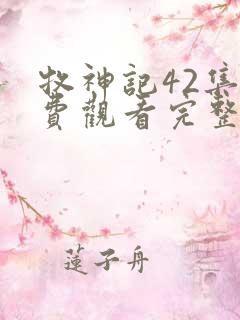 牧神記42集
費觀看完整
蓮子舟